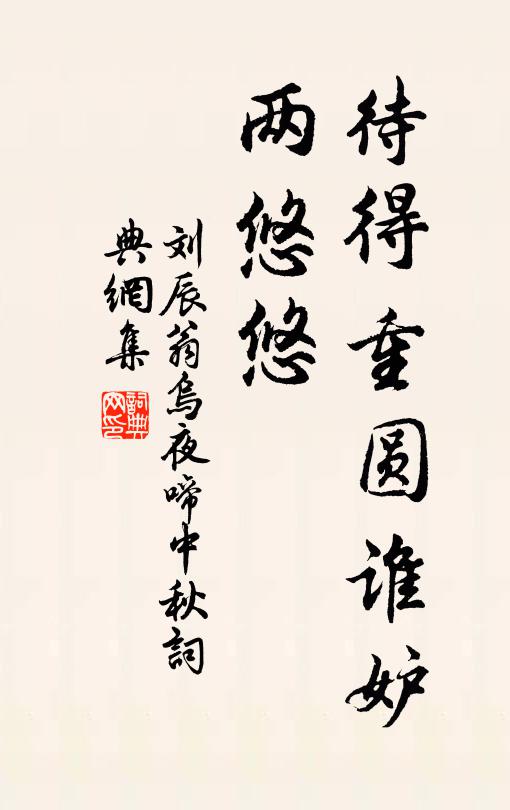 待得重圆谁妒
两悠悠
刘辰翁乌夜啼中秋詞
典網集
詞典網印